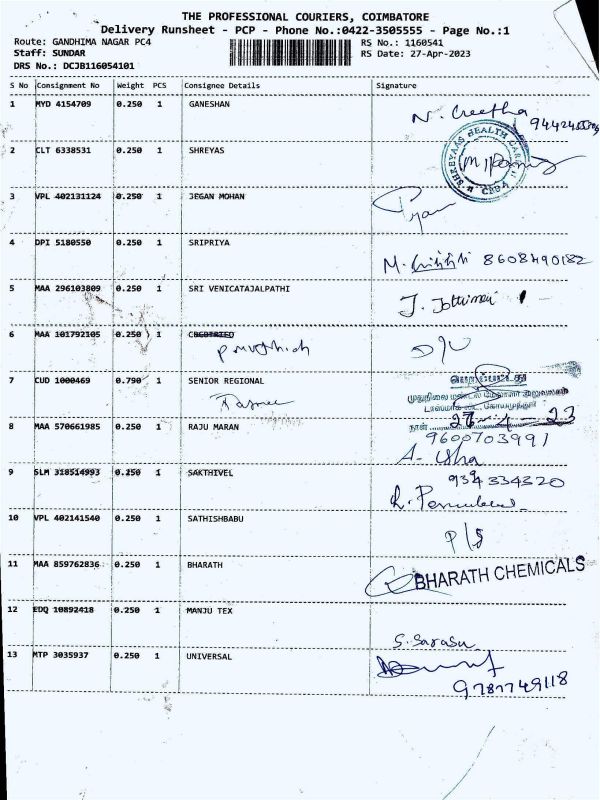 THE PROFESSIONAL COURIERS, COIMBATORE
Delivery Runsheet - PCP - Phone No.:0422-3505555 - Page No.:1
Route: GANDHIMA NAGAR PC4
RS No.: 1160541
Staff: SUNDAR
RS Date: 27-Apr-2023
DRS No.: DCJB116054101
S No Consignment No Weight PCS Consignee Details Signature
1 MYD 4154709 0.250 1 GANESHAN
N. Geetha
2 CLT 6338531 0.250 1 SHREYAS
SHREYAAS HEALTH CARE
3 VPL 402131124 0.250 1 JEGAN MOHAN
4 DPI 5180550 0.250 1 SRIPRIYA
M. 8608490182
5 MAA 296103809 0.250 1 SRI VENICATAJALPATHI
J. Jothimani
6 MAA 101792105 0.250 1
7 CUD 1000469 0.790 1 SENIOR REGIONAL
முதுநிலை மண்டல மேலாளர் அலுவலகம்
நாள் 27 23
8 MAA 570661985 0.250 1 RAJU MARAN
9600703991
A. Usha
9 SLM 318514993 0.250 1 SAKTHIVEL
934334320
10 VPL 402141540 0.250 1 SATHISHBABU
P/S
11 MAA 859762836 0.250 1 BHARATH
BHARATH CHEMICALS
12 EDQ 10892418 0.250 1 MANJU TEX
S. Sarasu
13 MTP 3035937 0.250 1 UNIVERSAL
9787749118